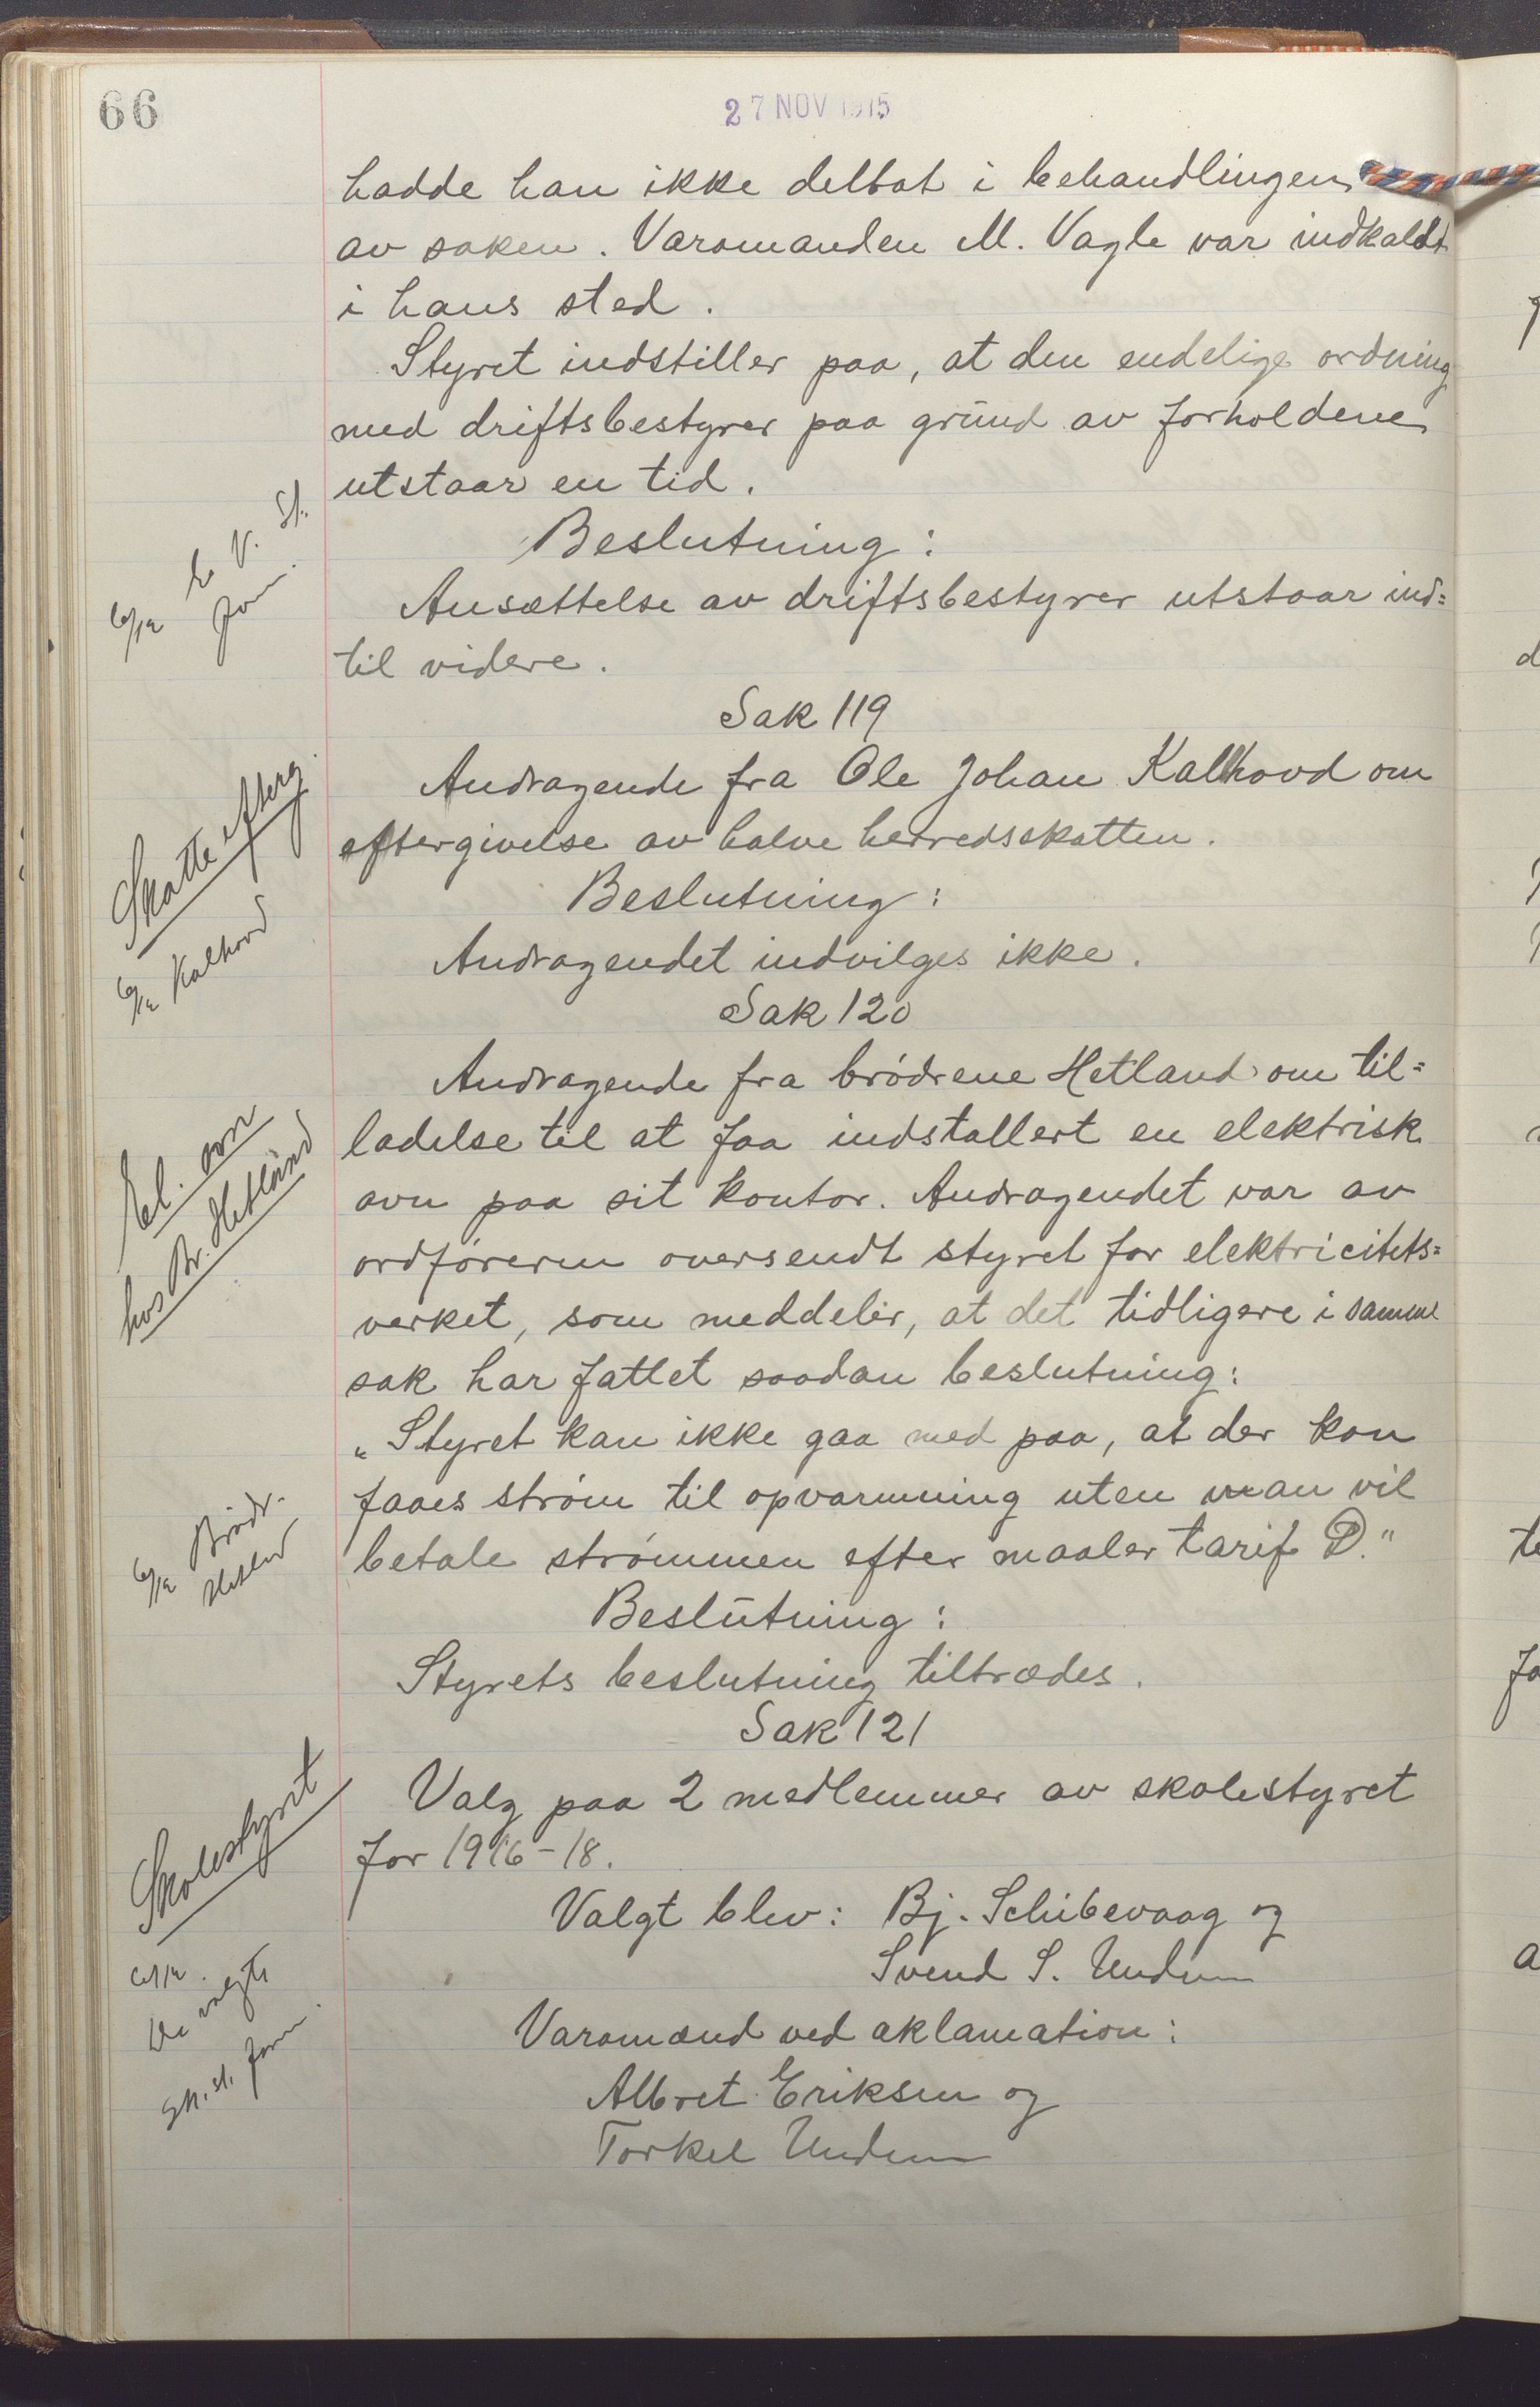 66
27 NOV 1915
hadde han ikke deltat i behandlingen
av saken. Varamanden M. Vagle var indkaldt
i hans sted.
Styret indstiller paa, at den endelige ordning
med driftsbestyrer paa grund av forholdene
utstaar en tid.
Beslutning:
Ansættelse av driftsbestyrer utstaar ind=
til videre.
6/12 E. V. St.
form.
Sak 119
Andragende fra Ole Johan Kalhovd om
eftergivelse av halve herredsskatten.
Skatteefterg.
Beslutning:
Andragendet indvilges ikke.
6/12 Kalhovd
Sak 120
Andragende fra brødrene Hetland om til=
ladelse til at faa indstallert en elektrisk
ovn paa sit kontor. Andragendet var av
ordføreren oversendt styret for elektricitets=
verket, som meddeler, at det tidligere i samme
sak har fattet saadan beslutning:
El. ovn
hos Br. Hetland
"Styret kan ikke gaa med paa, at der kan
faaes strøm til opvarmning uten man vil
betale strømmen efter maaler tarif D."
6/12 Brødr.
Hetland
Beslutning:
Styrets beslutning tiltrædes.
Sak 121
Valg paa 2 medlemmer av skolestyret
for 1916-18.
Skolestyret
Valgt blev: Bj. Schibevaag og
Svend S. Undem
6/12.
De valgte
Sk. st. form.
Varamænd ved aklamation:
Albret Eriksen og
Torkel Undem